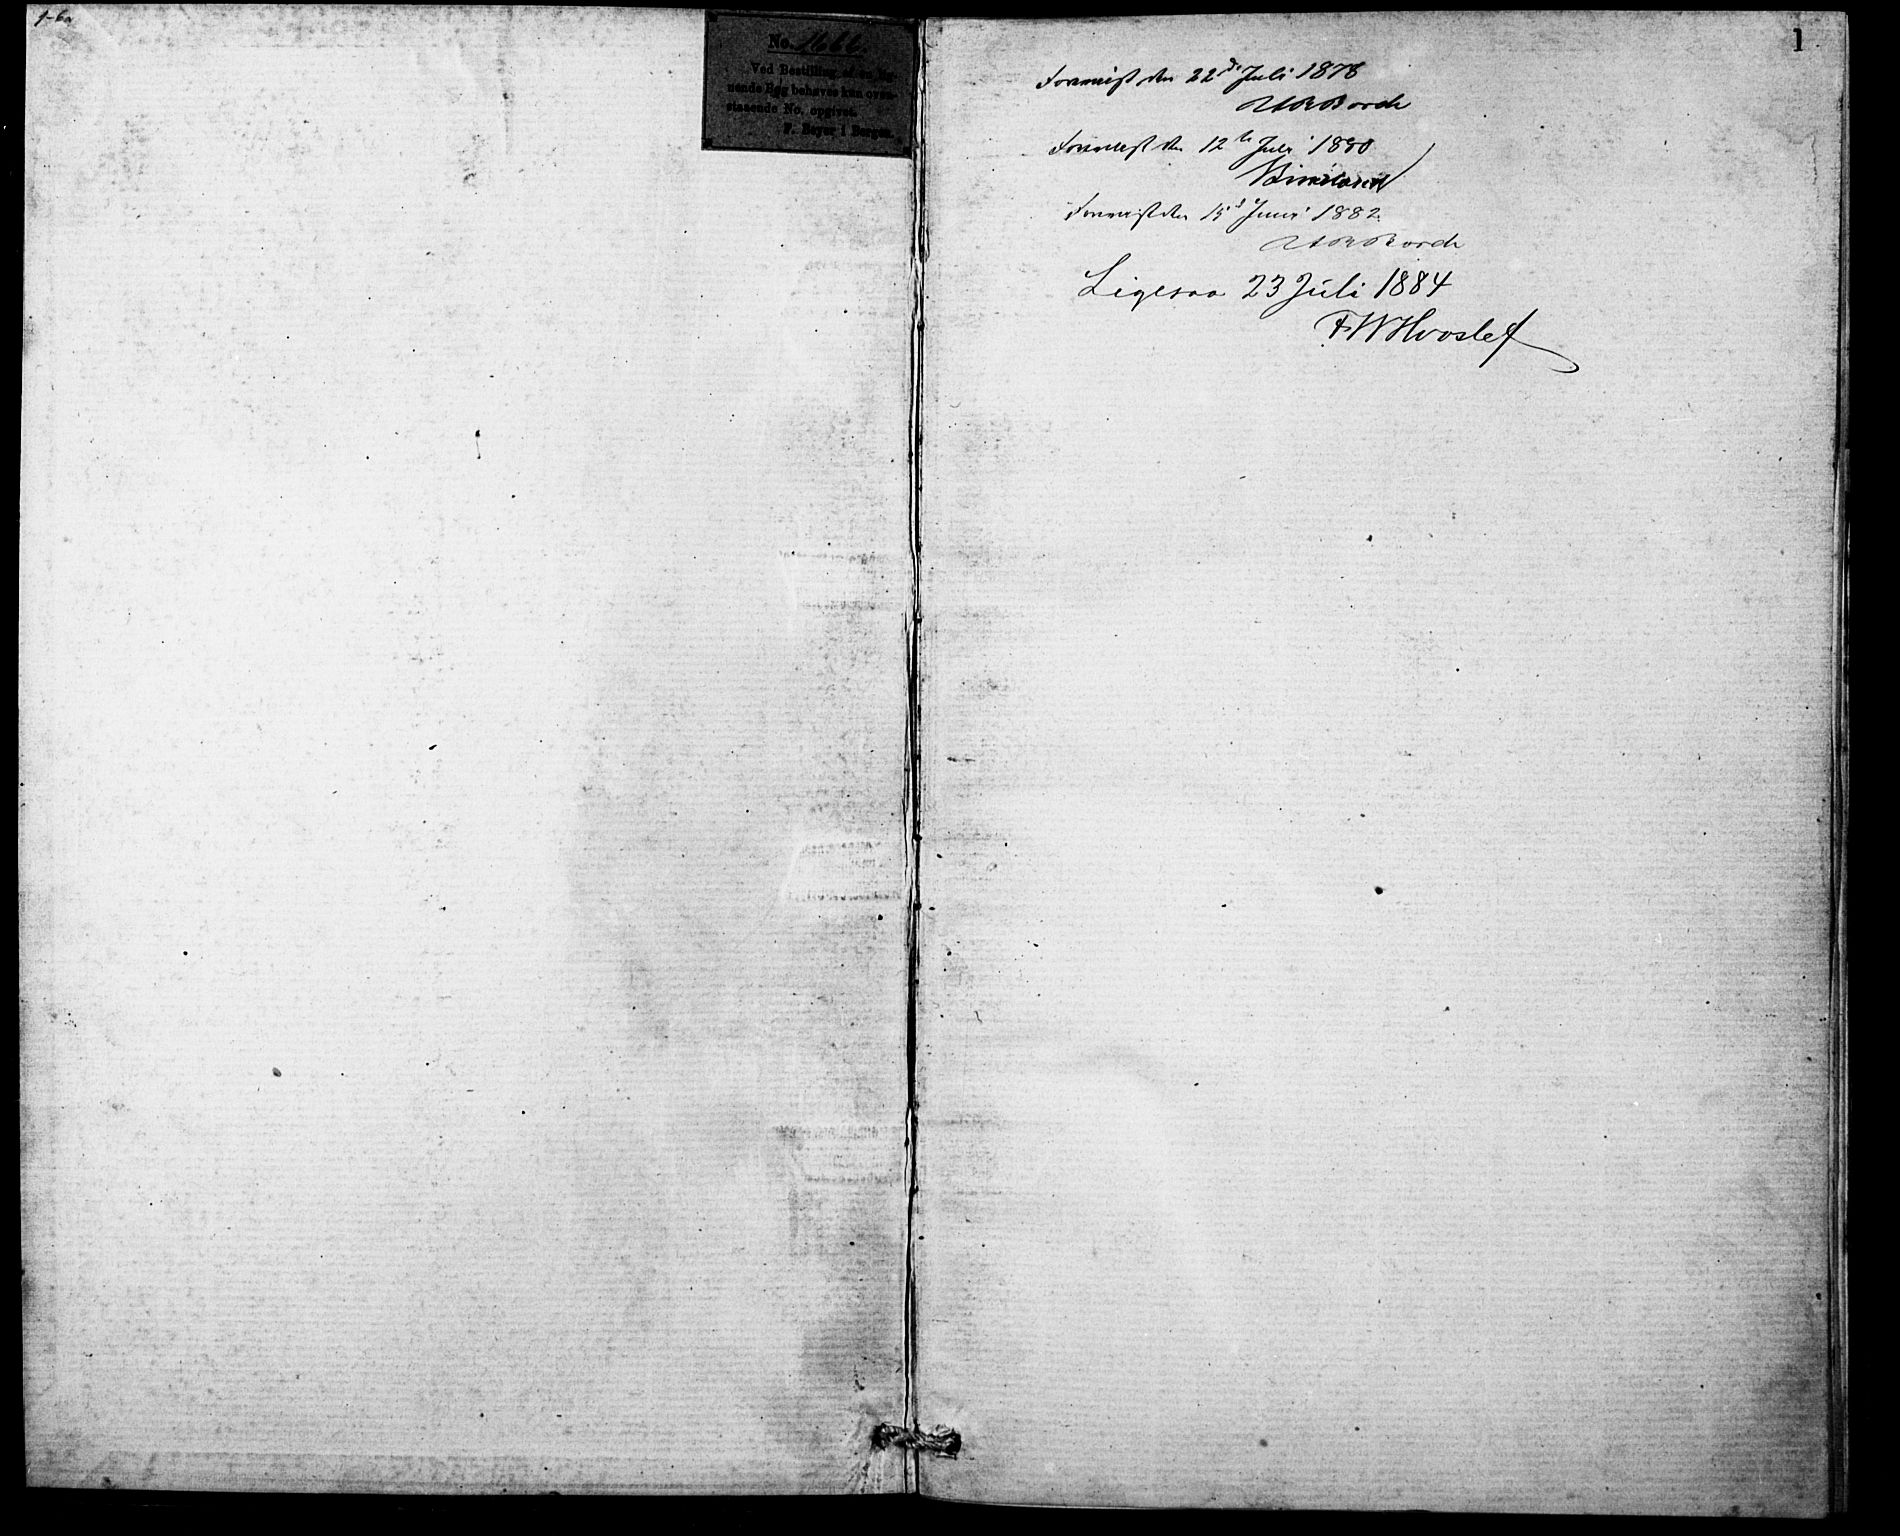 1-6a
No. 1666.
Ved Bestilling af en lig-
nende Bog behøves kun oven-
staaende No. opgivet.
F. Beyer i Bergen.
1
Foreviist den 22de Juli 1878
Foreviist den 12te Juli 1880
Foreviist den 15de Juni 1882
Ligesaa 23 Juli 1884
FWHvoslef